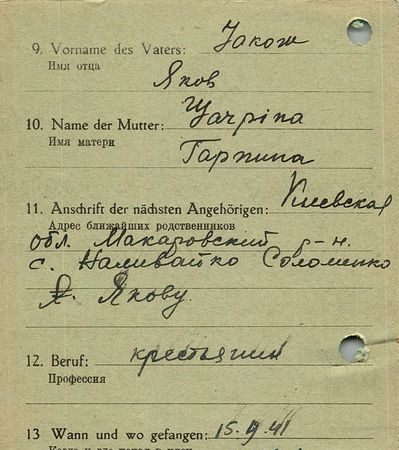 9. Vorname des Vaters: Jакош
Имя отца
Яков
10. Name der Mutter: Harpina
Имя матери
Гарпина
11. Anschrift der nächsten Angehörigen: Киевская
Адрес ближайших родственников
обл. Макаровский р-н.
с. Наливайко Соломенко
Я. Якову.
12. Beruf: крестьянин
Профессия
13 Wann und wo gefangen: 15.9.41